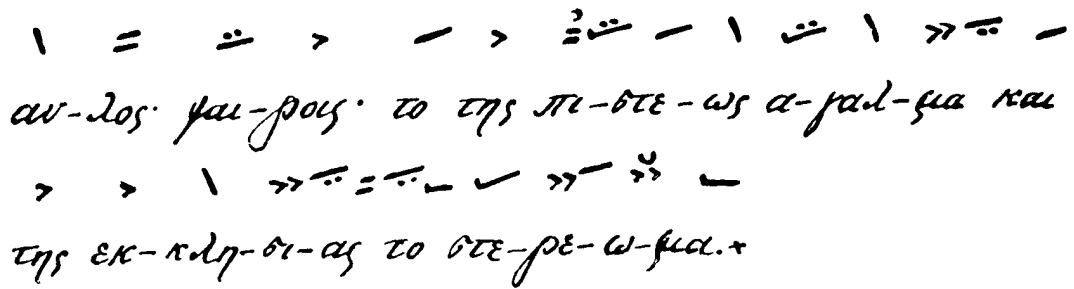 αυ-λος· χαι-ροις· το της πι-στε-ως α-γαλ-μα και
της εκ-κλη-σι-ας το στε-ρε-ω-μα.+